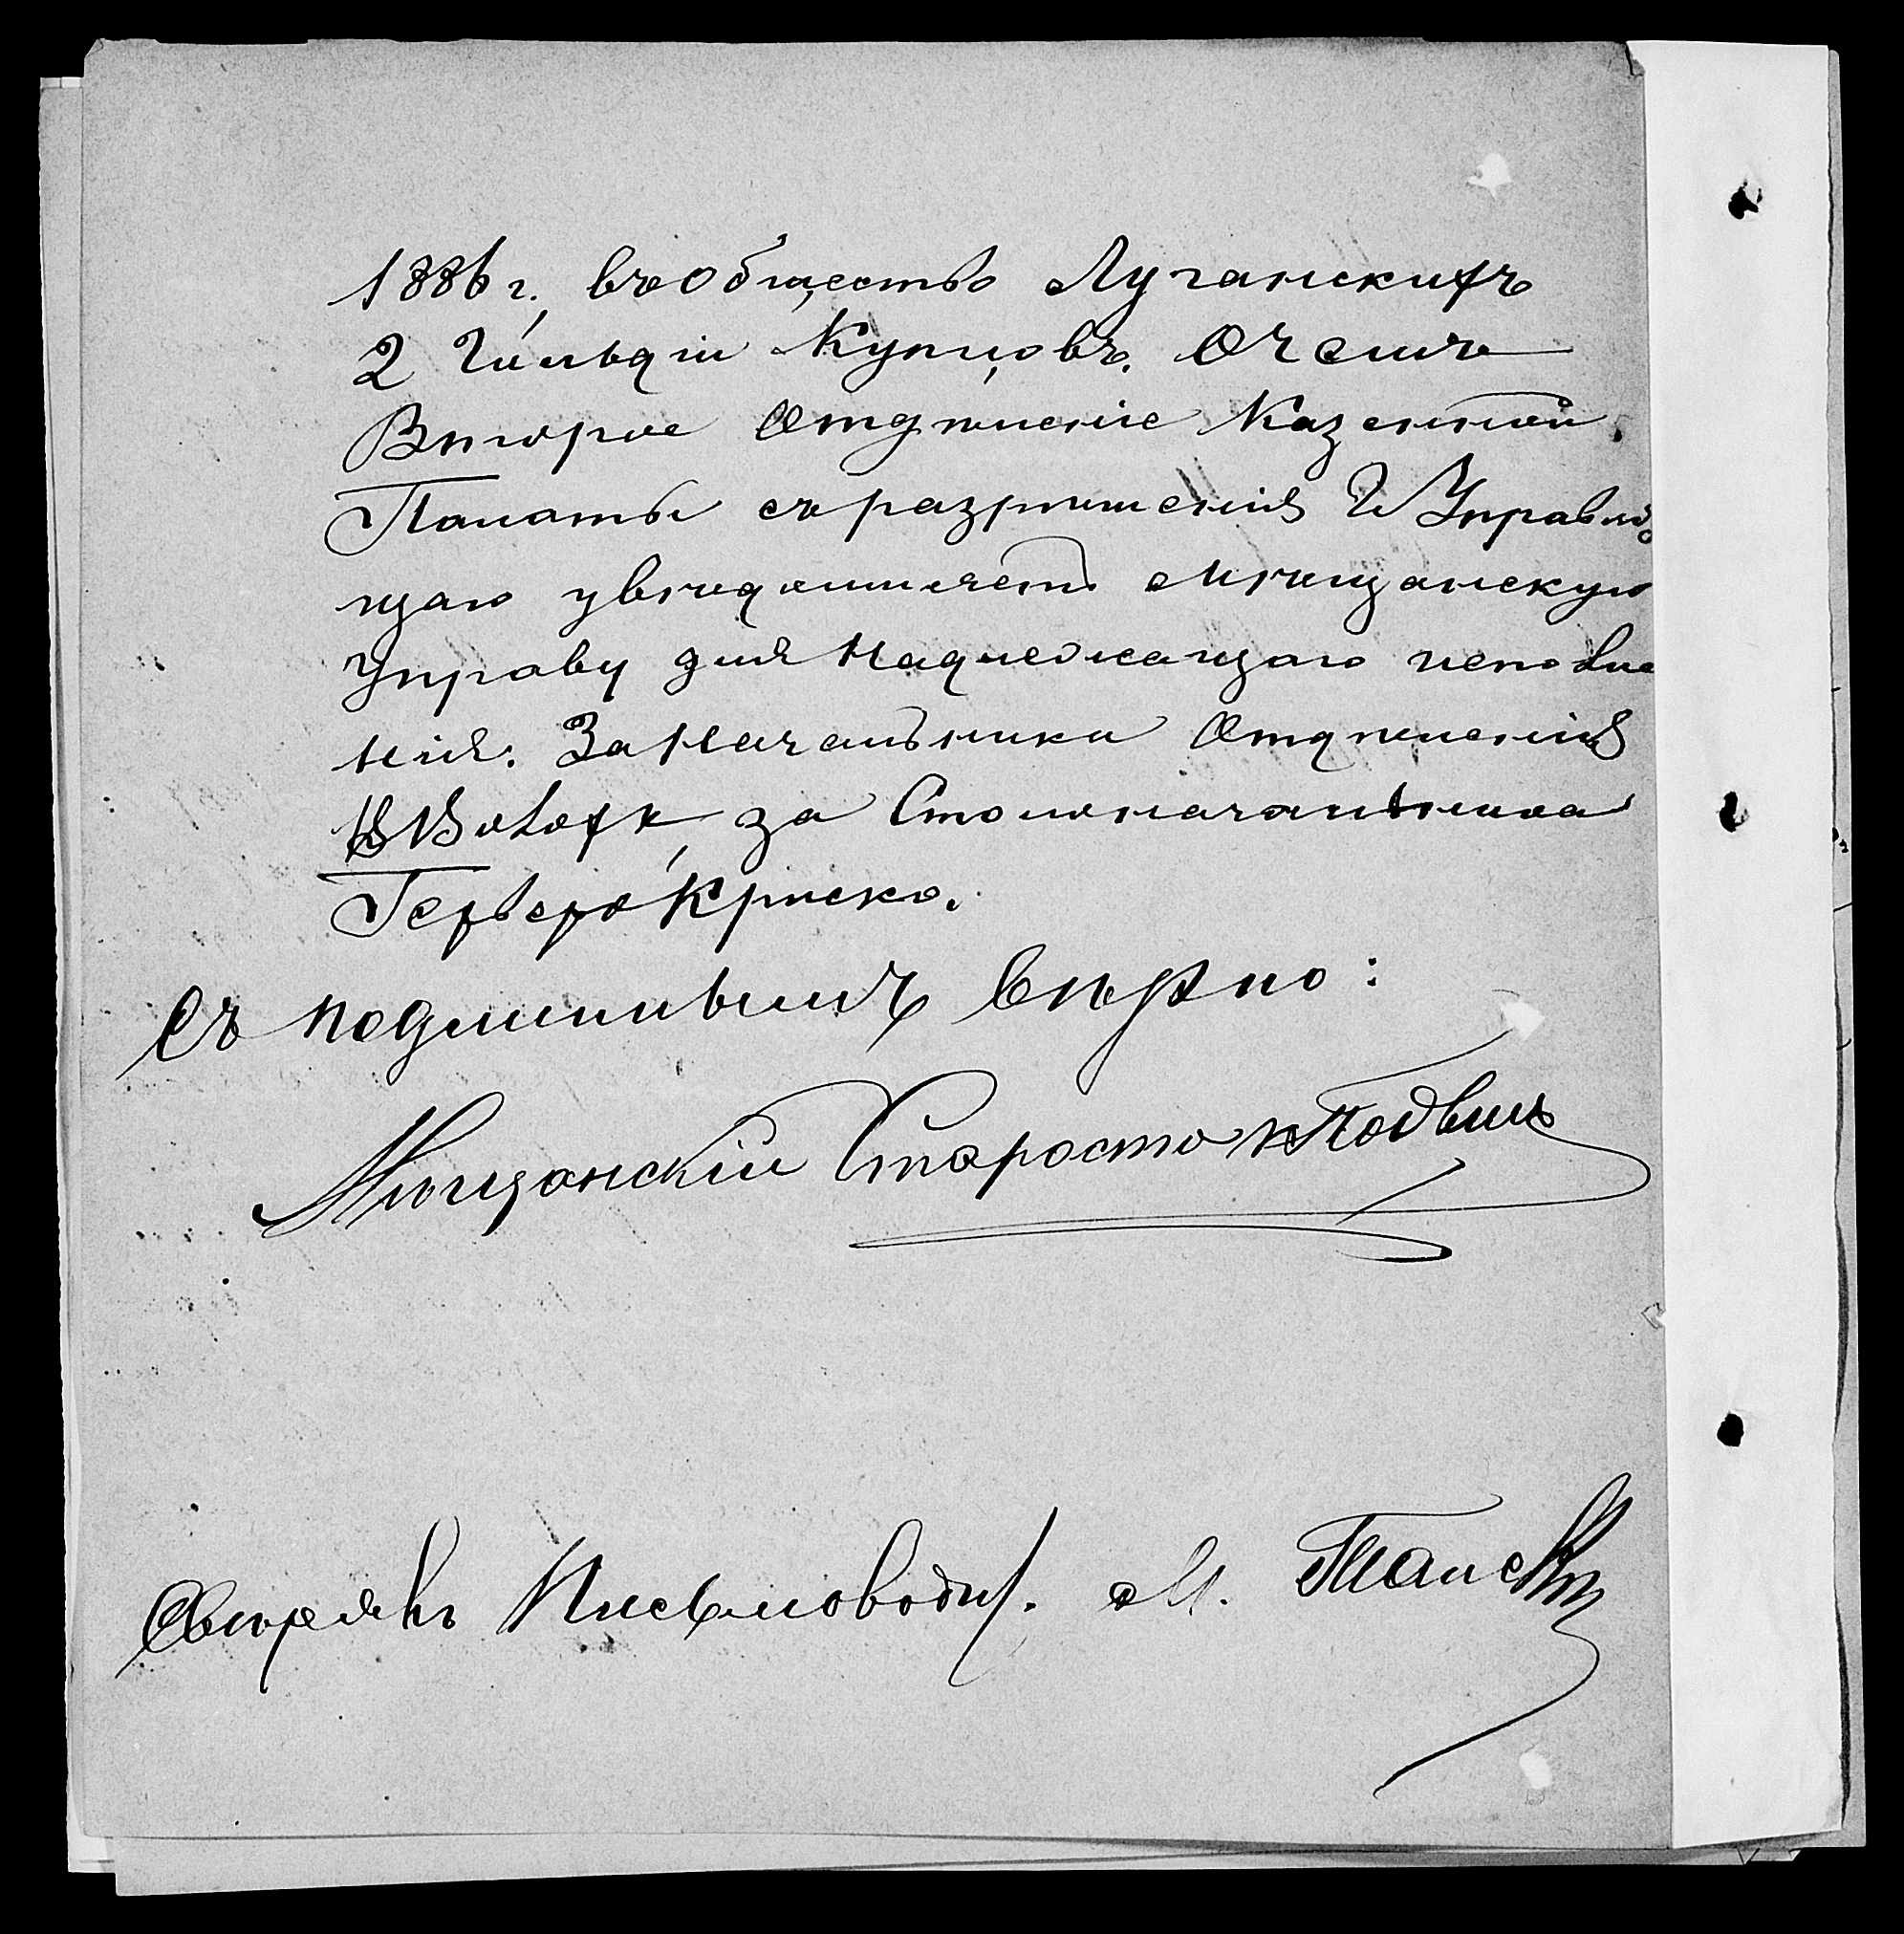 1886 г. въ общество Луганскихъ
2 Гильдіи Купцовъ. О чемъ
Второе Отдѣленіе Казенной
Палаты съ разрѣшенія Г Управляю
щаго увѣдомляетъ Мѣщанскую
Управу для надлежащаго исполне
нія. За Начальника Отдѣленія
за Столоначальника
Съ подлиннымъ вѣрно:
Мѣщанскій Староста
Свѣрялъ Письмовод. М.